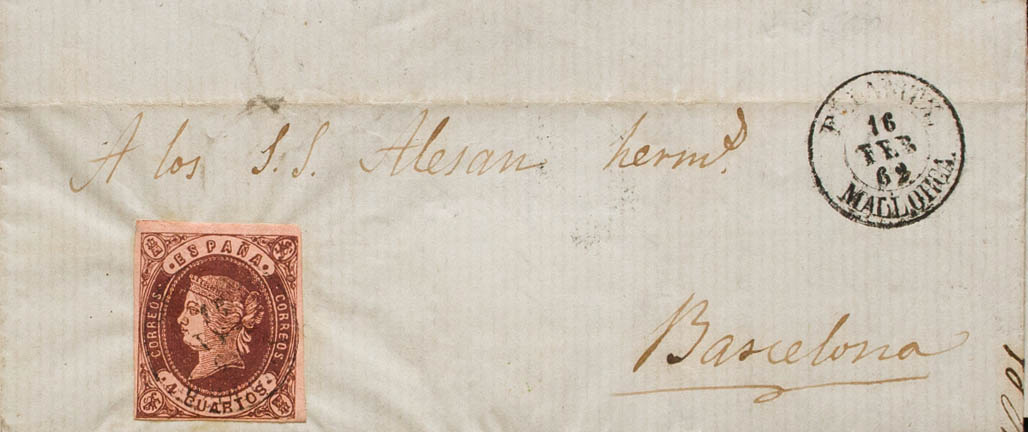 A los S.S. Alesan herm.s
FELANITX.
16
FEB
62
MALLORCA.
ESPAÑA
CORREOS
CORREOS
4 CUARTOS
Barcelona